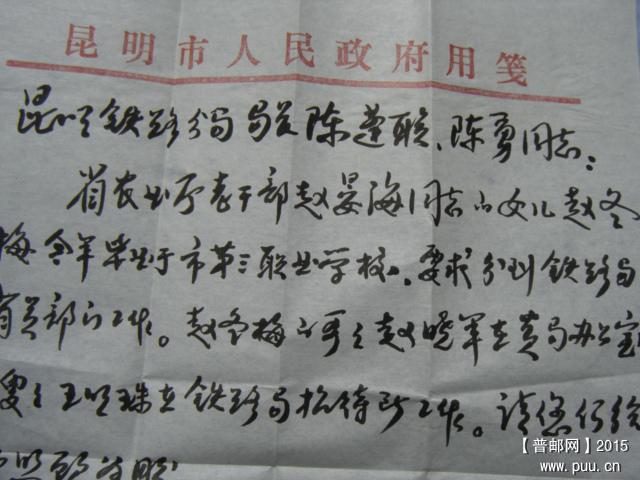 昆明市人民政府用笺
昆明铁路分局局长陈莲联、陈勇同志：
省农业厅老干部赵晏海同志的女儿赵冬
梅今年毕业于市第三职业学校，要求分到铁路局
有关部门工作。赵冬梅的哥哥赵晓军在贵局办公室
嫂嫂王明珠在铁路局招待所工作。请您们给
照顾为盼
【普邮网】2015
www.puu.cn